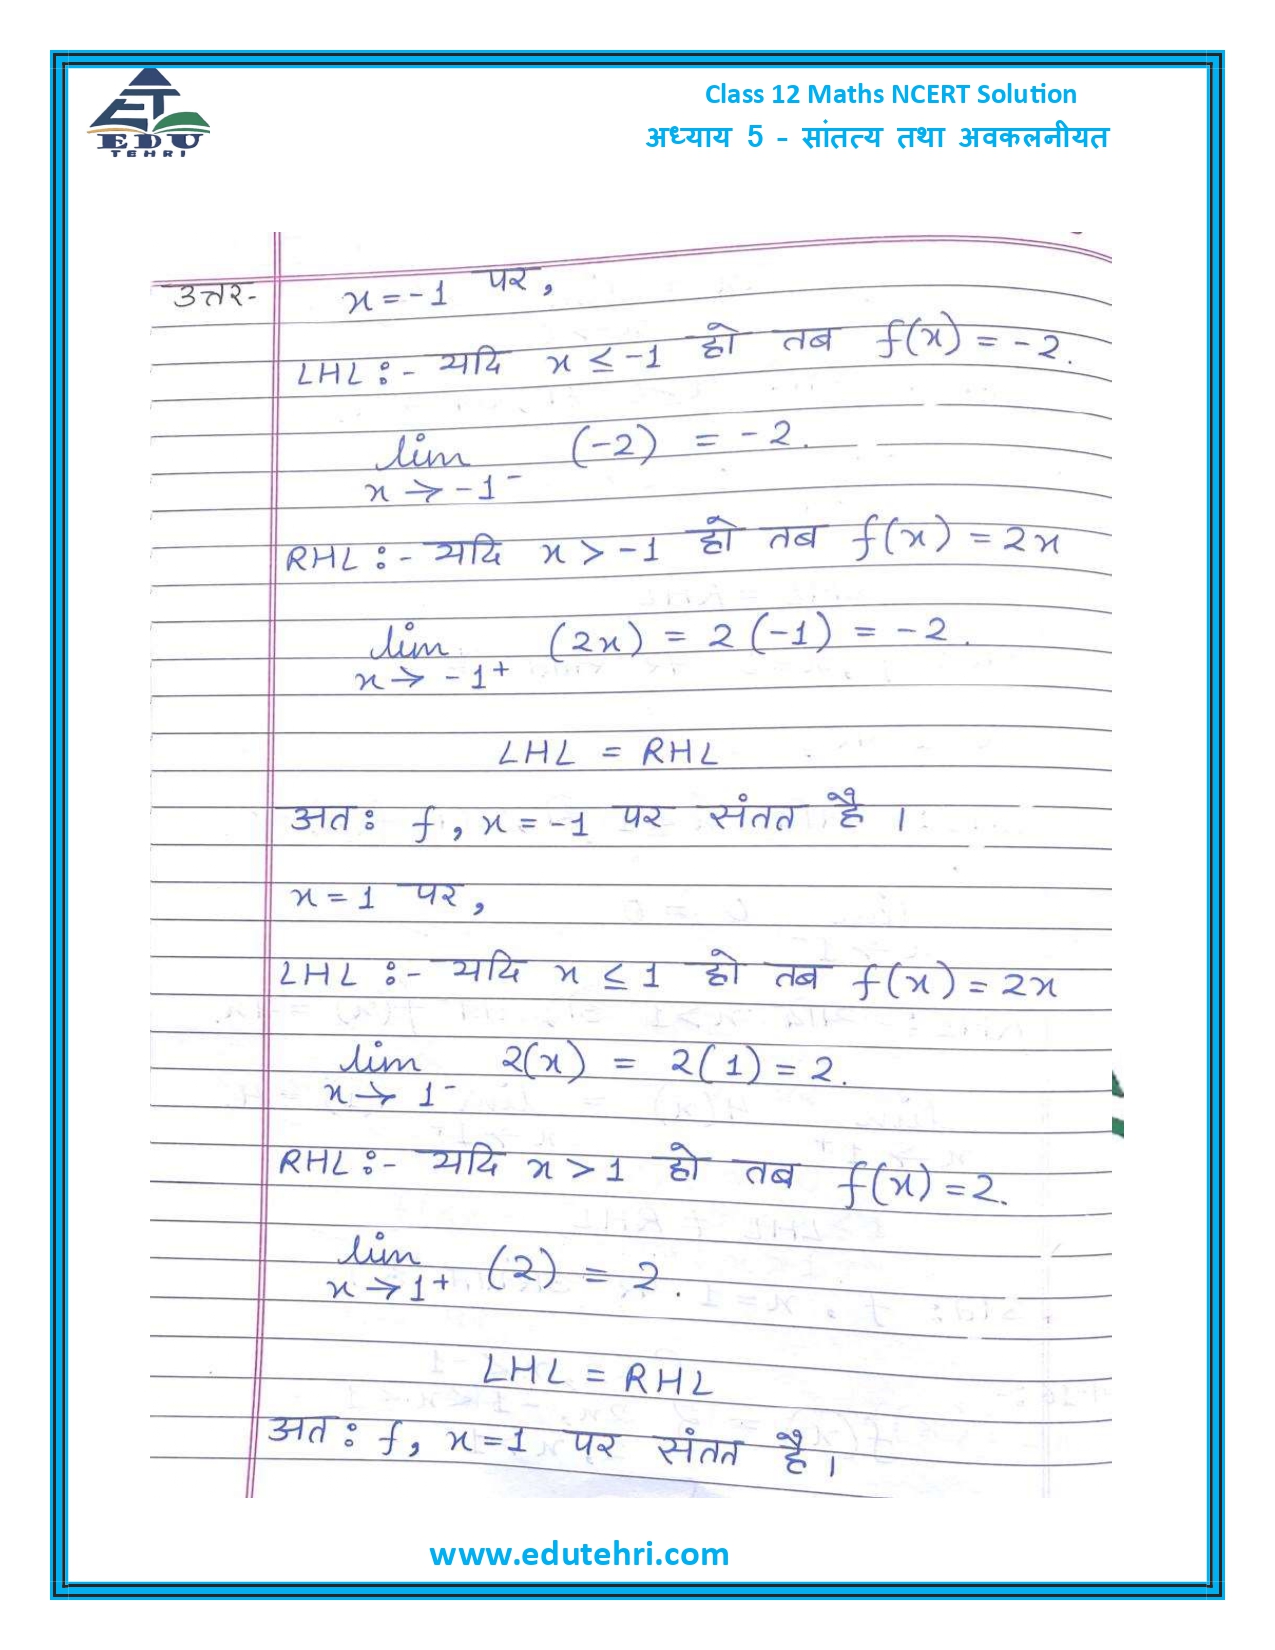 EDU
TEHRI
Class 12 Maths NCERT Solution
अध्याय 5 - सांतत्य तथा अवकलनीयत
उत्तर- x = -1 पर,
LHL :- यदि x ≤ -1 हो तब f(x) = -2.
lim (-2) = -2.
x → -1⁻
RHL :- यदि x > -1 हो तब f(x) = 2x
lim (2x) = 2(-1) = -2.
x → -1⁺
LHL = RHL
अतः f, x = -1 पर संतत है ।
x = 1 पर,
LHL :- यदि x ≤ 1 हो तब f(x) = 2x
lim 2(x) = 2(1) = 2.
x → 1⁻
RHL :- यदि x > 1 हो तब f(x) = 2.
lim (2) = 2.
x → 1⁺
LHL = RHL
अतः f, x = 1 पर संतत है ।
www.edutehri.com